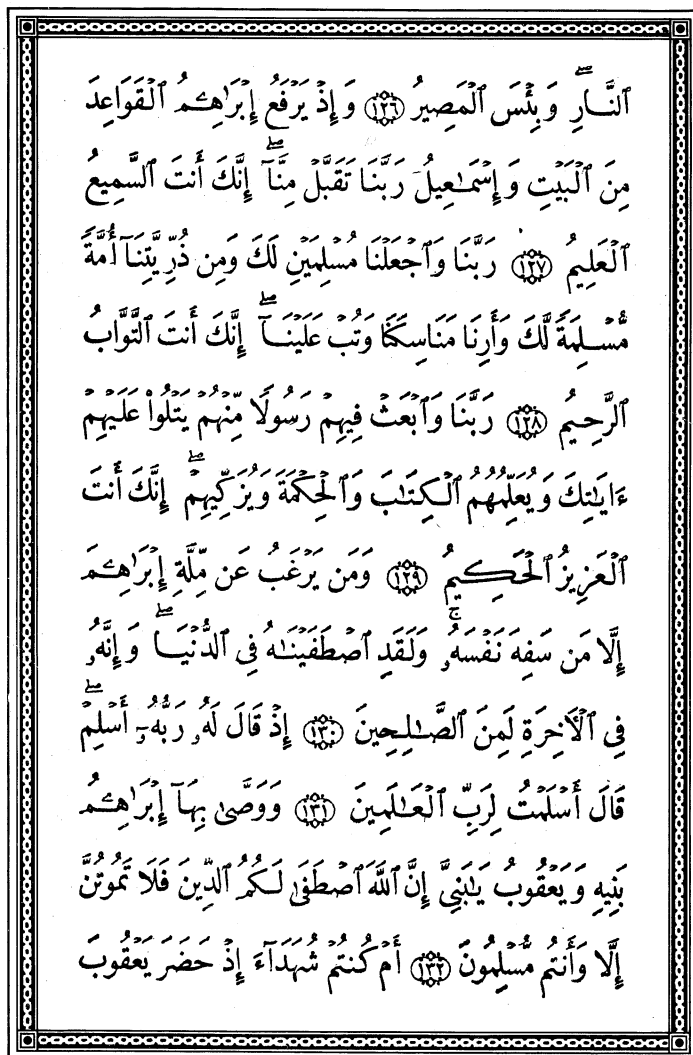 ٱلنَّارِۖ وَبِئۡسَ ٱلۡمَصِيرُ ١٢٦ وَإِذۡ يَرۡفَعُ إِبۡرَٰهِـۧمُ ٱلۡقَوَاعِدَ
مِنَ ٱلۡبَيۡتِ وَإِسۡمَٰعِيلُ رَبَّنَا تَقَبَّلۡ مِنَّآۖ إِنَّكَ أَنتَ ٱلسَّمِيعُ
ٱلۡعَلِيمُ ١٢٧ رَبَّنَا وَٱجۡعَلۡنَا مُسۡلِمَيۡنِ لَكَ وَمِن ذُرِّيَّتِنَآ أُمَّةٗ
مُّسۡلِمَةٗ لَّكَ وَأَرِنَا مَنَاسِكَنَا وَتُبۡ عَلَيۡنَآۖ إِنَّكَ أَنتَ ٱلتَّوَّابُ
ٱلرَّحِيمُ ١٢٨ رَبَّنَا وَٱبۡعَثۡ فِيهِمۡ رَسُولٗا مِّنۡهُمۡ يَتۡلُواْ عَلَيۡهِمۡ
ءَايَٰتِكَ وَيُعَلِّمُهُمُ ٱلۡكِتَٰبَ وَٱلۡحِكۡمَةَ وَيُزَكِّيهِمۡۖ إِنَّكَ أَنتَ
ٱلۡعَزِيزُ ٱلۡحَكِيمُ ١٢٩ وَمَن يَرۡغَبُ عَن مِّلَّةِ إِبۡرَٰهِـۧمَ
إِلَّا مَن سَفِهَ نَفۡسَهُۥۚ وَلَقَدِ ٱصۡطَفَيۡنَٰهُ فِي ٱلدُّنۡيَاۖ وَإِنَّهُۥ
فِي ٱلۡأٓخِرَةِ لَمِنَ ٱلصَّٰلِحِينَ ١٣٠ إِذۡ قَالَ لَهُۥ رَبُّهُۥٓ أَسۡلِمۡۖ
قَالَ أَسۡلَمۡتُ لِرَبِّ ٱلۡعَٰلَمِينَ ١٣١ وَوَصَّىٰ بِهَآ إِبۡرَٰهِـۧمُ
بَنِيهِ وَيَعۡقُوبُ يَٰبَنِيَّ إِنَّ ٱللَّهَ ٱصۡطَفَىٰ لَكُمُ ٱلدِّينَ فَلَا تَمُوتُنَّ
إِلَّا وَأَنتُم مُّسۡلِمُونَ ١٣٢ أَمۡ كُنتُمۡ شُهَدَآءَ إِذۡ حَضَرَ يَعۡقُوبَ